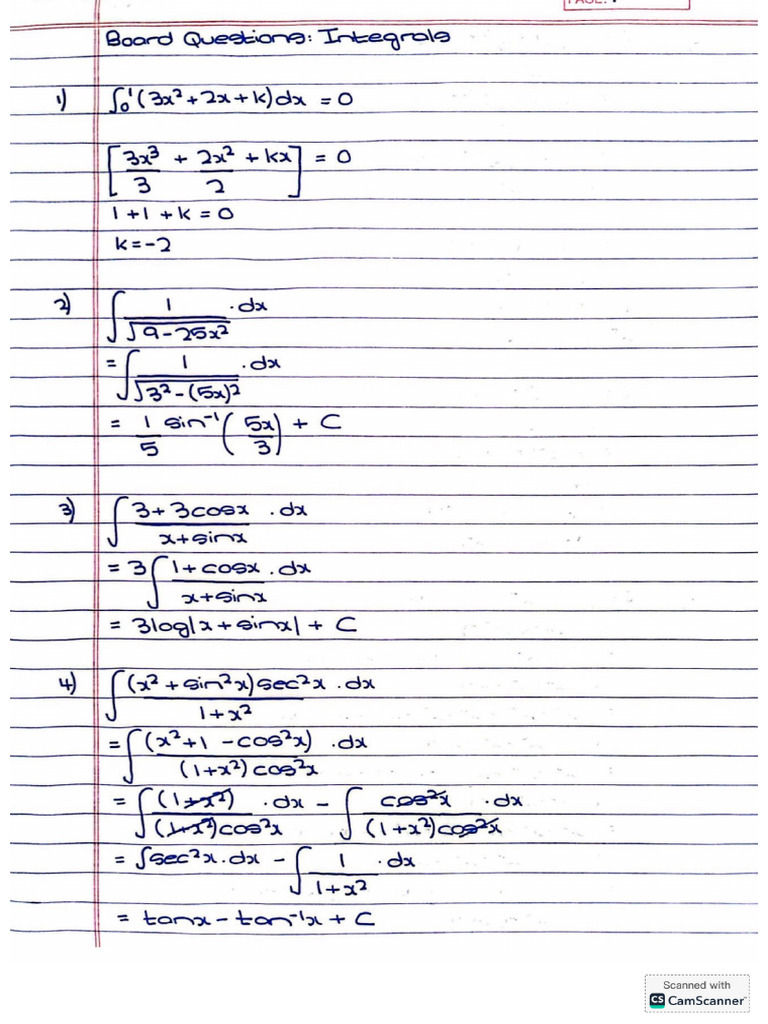 PAGE:
Board Questions: Integrals
1) ∫₀¹(3x²+2x+k)dx = 0
[3x³/3 + 2x²/2 + kx] = 0
1+1+k=0
k=-2
2) ∫ 1/√(9-25x²) .dx
= ∫ 1/√(3²-(5x)²) .dx
= 1/5 sin⁻¹(5x/3) + C
3) ∫ (3+3cosx)/(x+sinx) .dx
= 3∫ (1+cosx)/(x+sinx) .dx
= 3log|x+sinx| + C
4) ∫ (x²+sin²x)sec²x/(1+x²) .dx
= ∫ (x²+1-cos²x)/((1+x²)cos²x) .dx
= ∫ (1+x²)/((1+x²)cos²x) .dx - ∫ cos²x/((1+x²)cos²x) .dx
= ∫sec²x.dx - ∫ 1/(1+x²) .dx
= tanx - tan⁻¹x + C
Scanned with
CS CamScanner